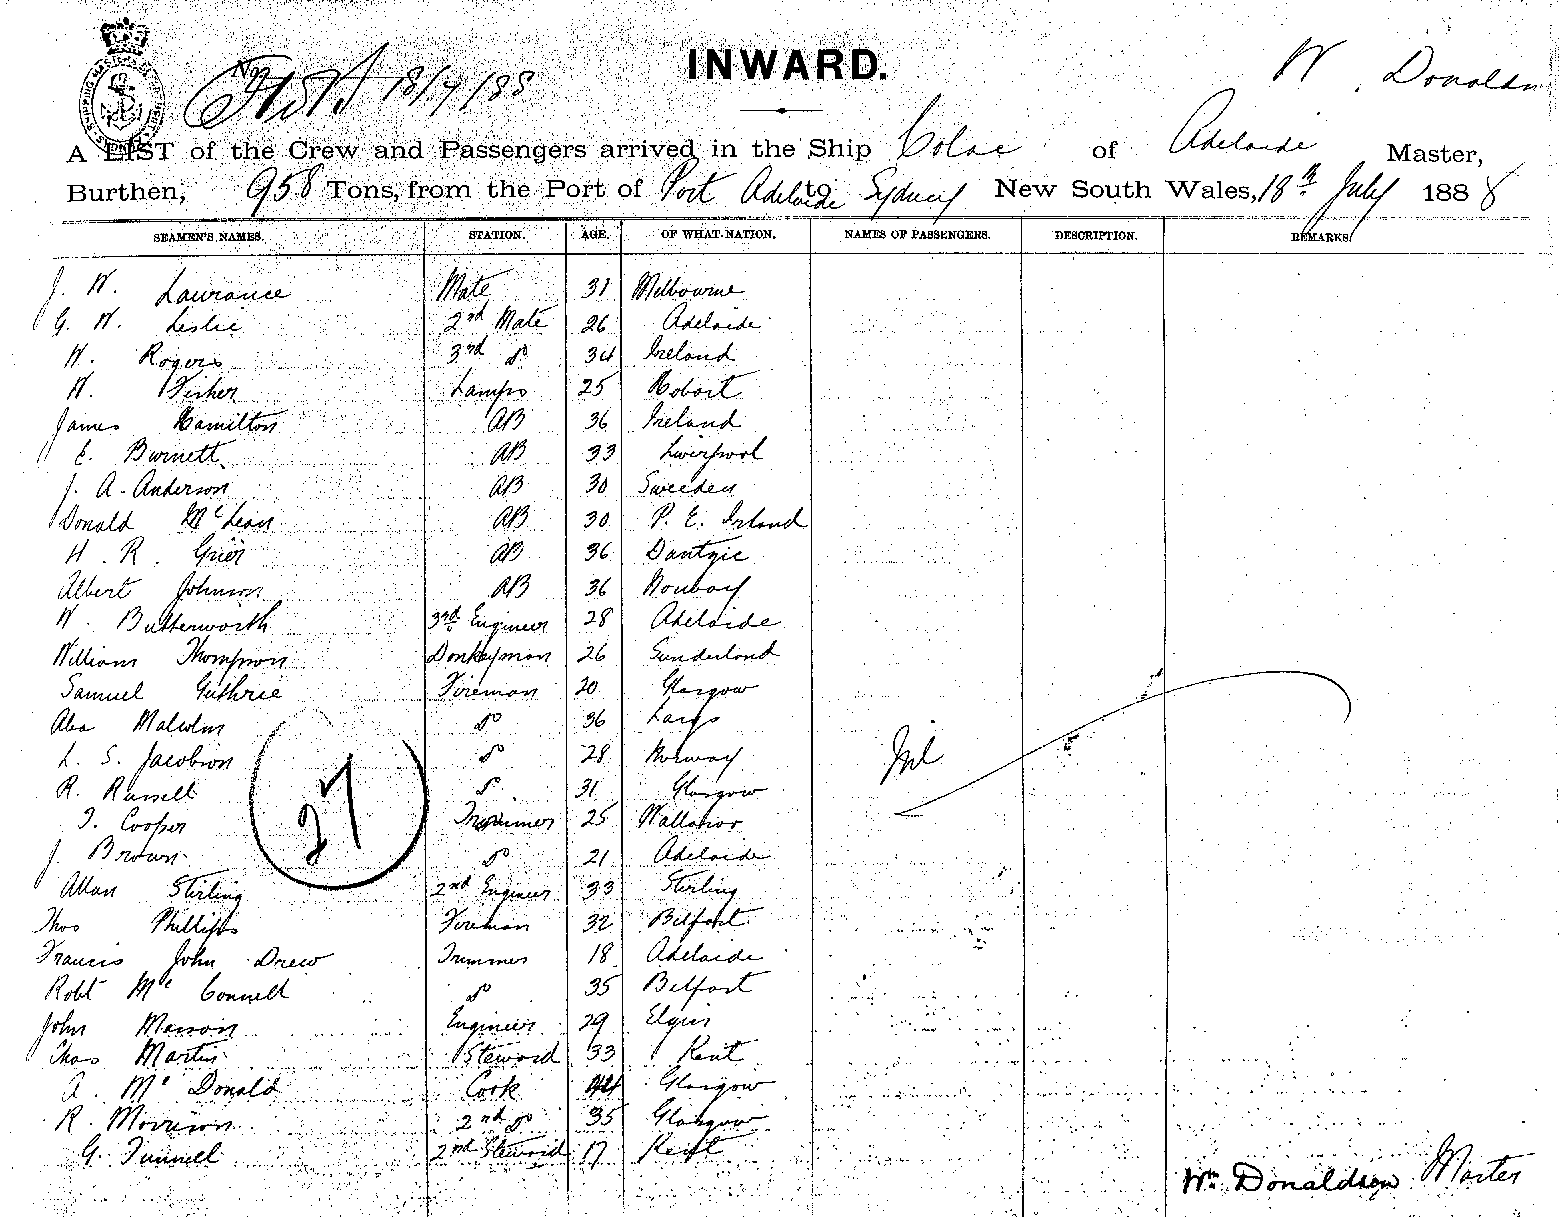 INWARD.
W. Donaldson
18/7/88
A LIST of the Crew and Passengers arrived in the Ship Colac of Adelaide Master,
Burthen, 958 Tons, from the Port of Port Adelaide to Sydney New South Wales, 18th July 1888
SEAMEN'S NAMES. STATION. AGE. OF WHAT NATION. NAMES OF PASSENGERS. DESCRIPTION. REMARKS.
J. W. Lawrance Mate 31 Melbourne
G. W. Leslie 2nd Mate 26 Adelaide
W. Rogers 3rd do 34 Ireland
W. Fisher Lamps 25 Hobart
James Hamilton AB 36 Ireland
E. Burnett AB 33 Liverpool
J. A. Anderson AB 30 Sweeden
Donald McLean AB 30 P. E. Irland
H. R. Grier AB 36 Dantzic
Albert Johnson AB 36 Norway
W. Butterworth 3rd Engineer 28 Adelaide
William Thompson Donkeyman 26 Sunderland
Samuel Guthrie Fireman 20 Glasgow
Alex Malcolm do 36 Largs
L. S. Jacobson do 28 Norway
Nil
R. Russell do 31 Glasgow
27
T. Cooper Trimmer 25 Wallaroo
J. Brown do 21 Adelaide
Allan Stirling 2nd Engineer 33 Stirling
Thos Phillips Fireman 32 Belfast
Francis John Drew Trimmer 18 Adelaide
Robt McConnell do 35 Belfast
John Masson Engineer 29 Elgin
Chas Martin Steward 33 Kent
A. McDonald Cook 44 Glasgow
R. Morrison 2nd do 35 Glasgow
G. Funnell 2nd Steward 17 Kent
Wm Donaldson Master